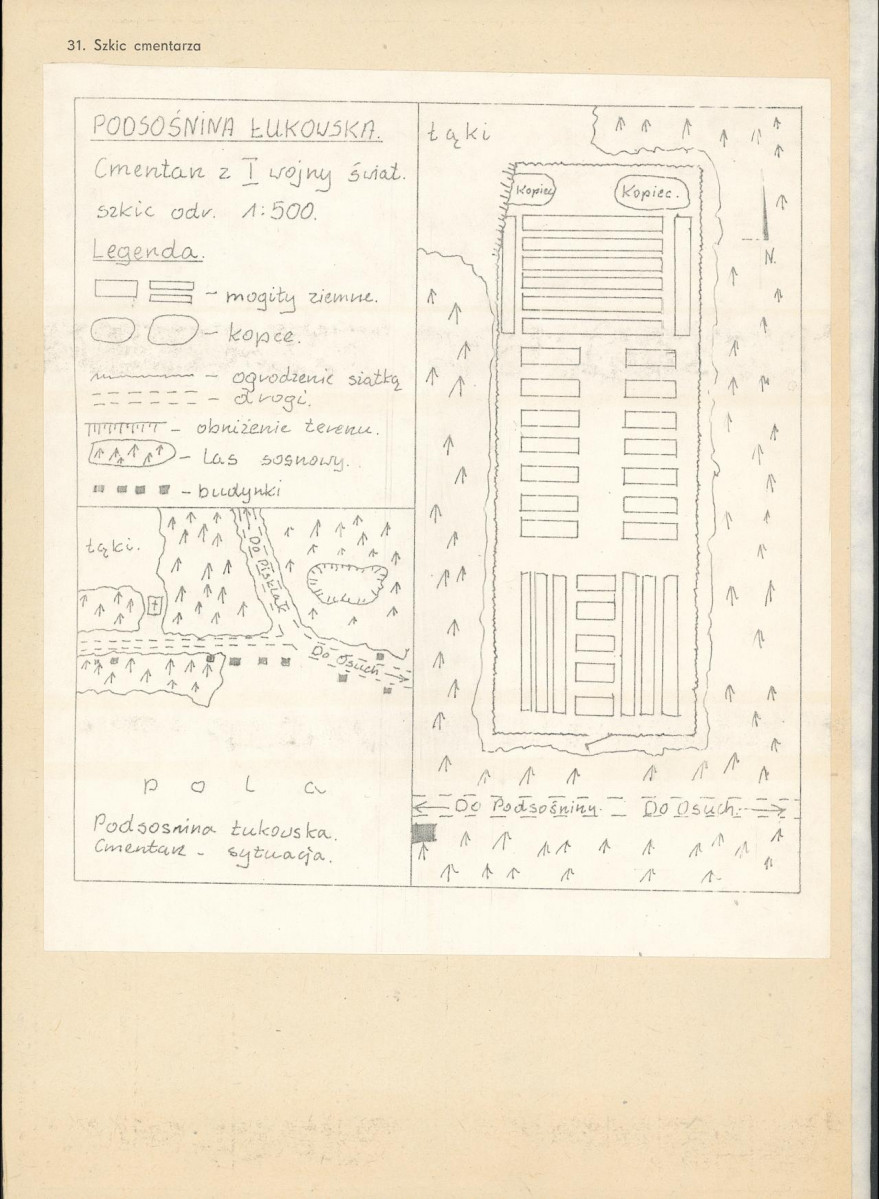 31. Szkic cmentarza
PODSOŚNINA ŁUKOWSKA.
Cmentarz z I wojny świat.
szkic odr. 1:500.
Legenda.
- mogiły ziemne.
- kopce.
- ogrodzenie siatką
- drogi.
- obniżenie terenu.
- Las sosnowy.
- budynki
łąki.
Do Pisklak
Do Osuch
pola
Podsosnina Łukowska.
Cmentarz - sytuacja.
łąki
Kopiec
Kopiec.
N.
Do Podsośniny.
Do Osuch.